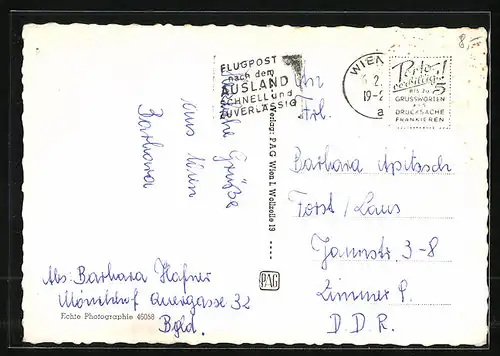 8,-
FLUGPOST
nach dem
AUSLAND
SCHNELL und
ZUVERLÄSSIG
WIEN
2.
19-2
a
Porto!
5
BIS ZU
GRUSSWORTEN
ALS
DRUCKSACHE
FRANKIEREN
Grüße
aus Wien
Barbara
Verlag: PAG Wien I, Wollzeile 19
PAG
An
Frl.
Barbara Apitzsch
Forst/Laus
Jahnstr. 3-8
Zimmer 9.
D.D.R.
Abs: Barbara Hafner
Mönchhof Quergasse 32
Bgld.
Echte Photographie 46058